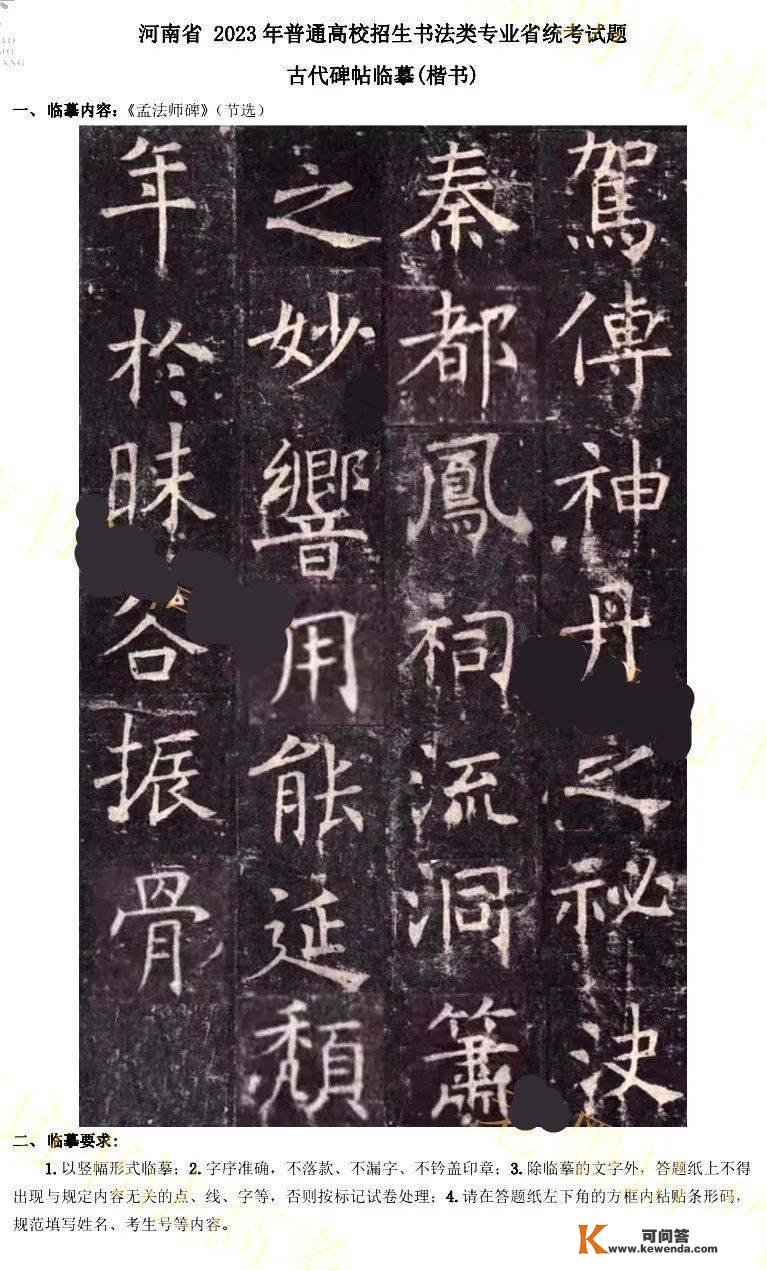 河南省 2023 年普通高校招生书法类专业省统考试题
古代碑帖临摹(楷书)
一、临摹内容：《孟法师碑》（节选）
駕傳神丹之祕決
秦都鳳祠流洞簫
之妙響用能延頹
年於昧谷振骨
二、临摹要求：
1.以竖幅形式临摹；2.字序准确，不落款、不漏字、不钤盖印章；3.除临摹的文字外，答题纸上不得
出现与规定内容无关的点、线、字等，否则按标记试卷处理；4.请在答题纸左下角的方框内粘贴条形码，
规范填写姓名、考生号等内容。
K 可问答
www.kewenda.com